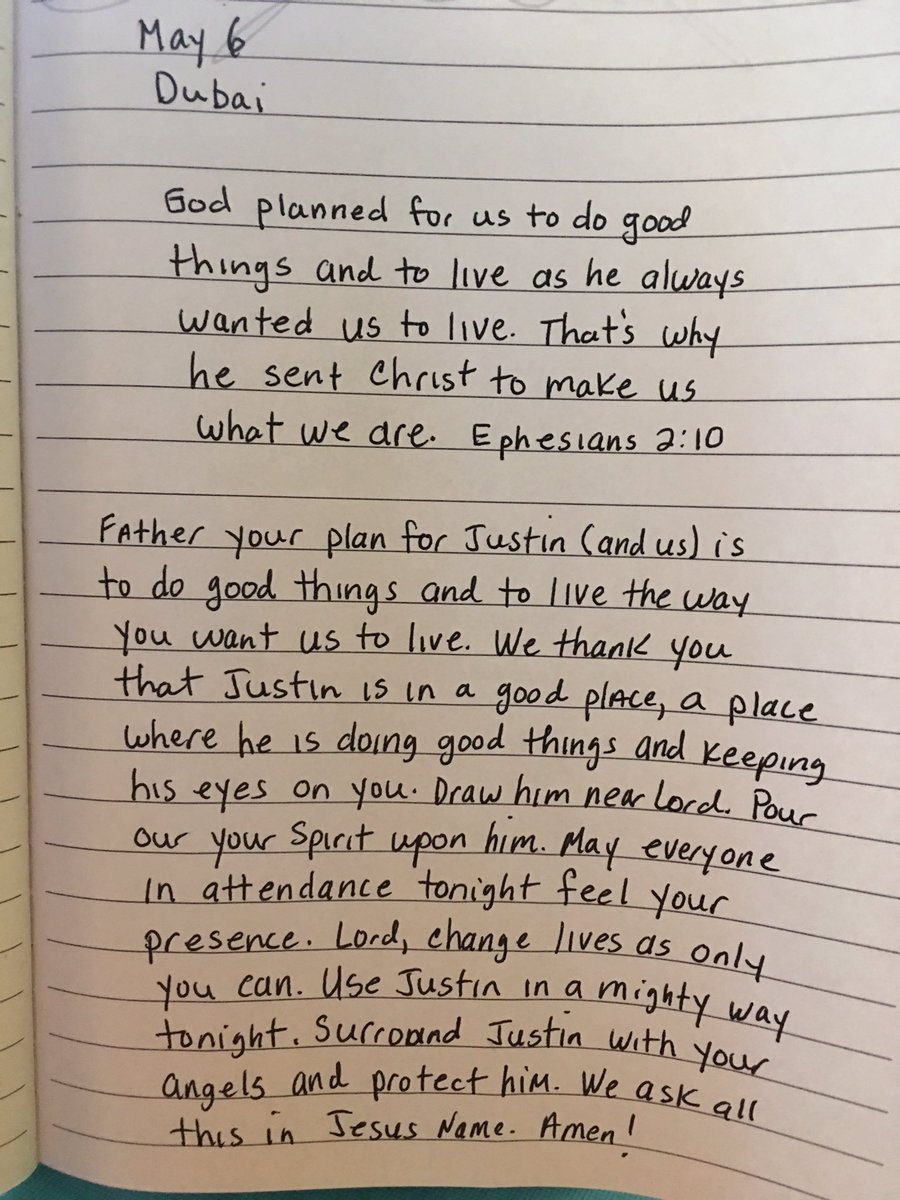 May 6
Dubai
God planned for us to do good
things and to live as he always
wanted us to live. That's why
he sent Christ to make us
what we are. Ephesians 2:10
Father your plan for Justin (and us) is
to do good things and to live the way
you want us to live. We thank you
that Justin is in a good place, a place
where he is doing good things and keeping
his eyes on you. Draw him near Lord. Pour
our your Spirit upon him. May everyone
in attendance tonight feel your
presence. Lord, change lives as only
you can. Use Justin in a mighty way
tonight. Surround Justin with your
angels and protect him. We ask all
this in Jesus Name. Amen!